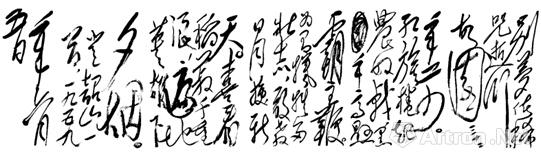 别梦依稀
咒逝川
故园三
十二年前
红旗卷起
农奴戟黑
手高悬
霸主鞭
为有牺牲多
壮志敢教
日月换新
天喜看
稻菽千重
浪遍地
英雄下
夕烟
登韶山一
首一九五九
年六月
Artron.Net